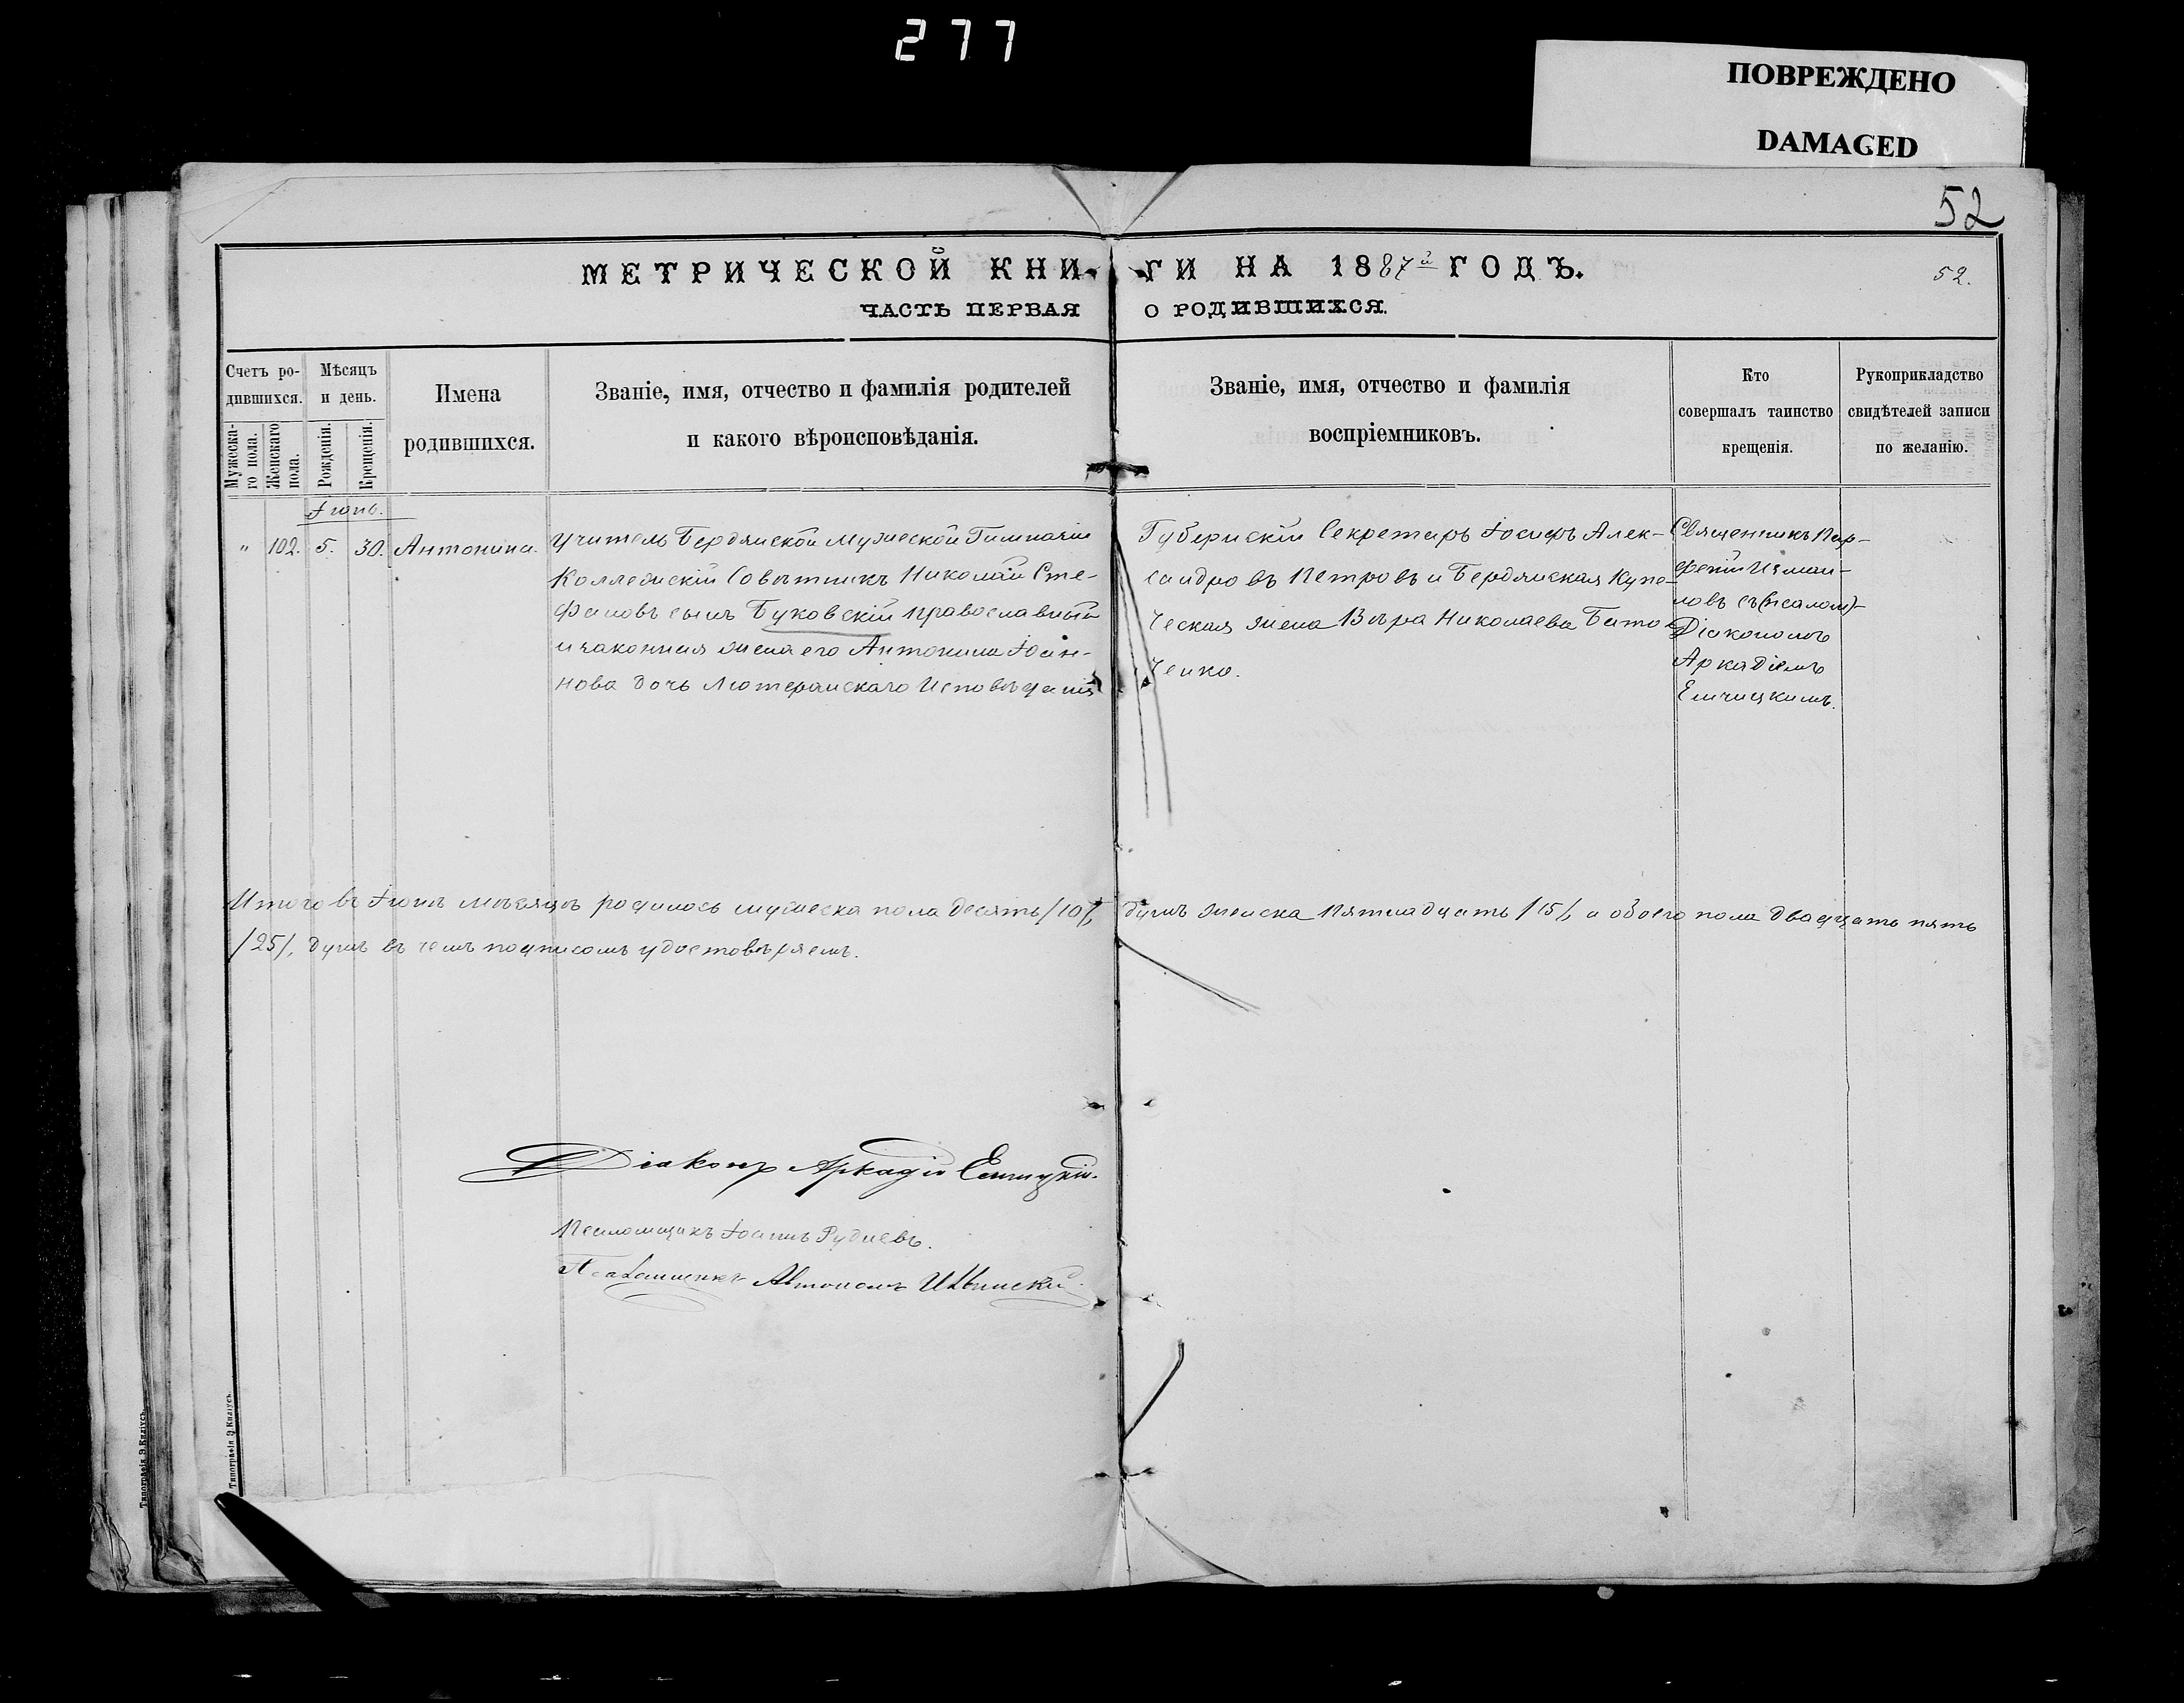 277
ПОВРЕЖДЕНО
DAMAGED
52
МЕТРИЧЕСКОЙ КНИ-ГИ НА 1887й ГОДЪ.
52.
ЧАСТЬ ПЕРВАЯ О РОДИВШИХСЯ.
Счетъ ро-
дившихся.
Мужеска-
го пола.
Женскаго
пола.
Мѣсяцъ
и день.
Рожденія.
Крещенія.
Имена
родившихся.
Званіе, имя, отчество и фамилія родителей
и какого вѣроисповѣданія.
Званіе, имя, отчество и фамилія
воспріемниковъ.
Кто
совершалъ таинство
крещенія.
Рукоприкладство
свидѣтелей записи
по желанію.
Іюнь.
" 102. 5. 30. Антонина.
Учитель Бердянской Мужеской Гимназіи
Коллежскій Совѣтникъ Николай Сте-
фановъ сынъ Буковскій православный
и законная жена его Антонина Іоан-
нова дочь Лютеранскаго Исповѣданія
Губернскій Секретарь Іосифъ Алек-
сандровъ Петровъ и Бердянская Купе-
ческая жена Вѣра Николаева
ченко.
Священникъ Пар-
феній Измаи-
ловъ съ (псалом)
Діакономъ
Аркадіемъ
Итого въ Іюнѣ мѣсяцѣ родилось мужеска пола десять /10/, душъ женска пятнадцать /15/, а обоего пола двадцать пять
/25/, душъ въ чемъ подписомъ удостовѣряемъ.
Діаконъ Аркадій
Псаломщикъ Іоаннъ Рудневъ.
Псаломщикъ
Типографія Э. Килiусъ.
Типографія Э. Килiусъ.